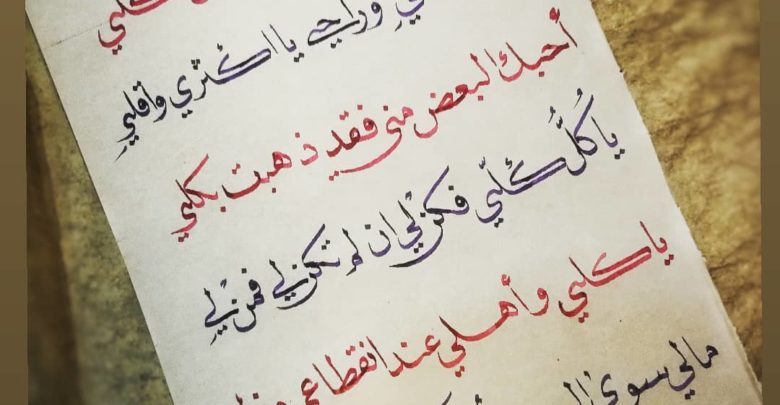 كلي
وراحي يا اكثري واقلي
أحبك البعض مني فقد ذهبت بكلي
يا كُلَّ كُلّي فكن لي ان لم تكن لي فمن لي
يا كلي وأهلي عند انقطاعي
مالي سوى